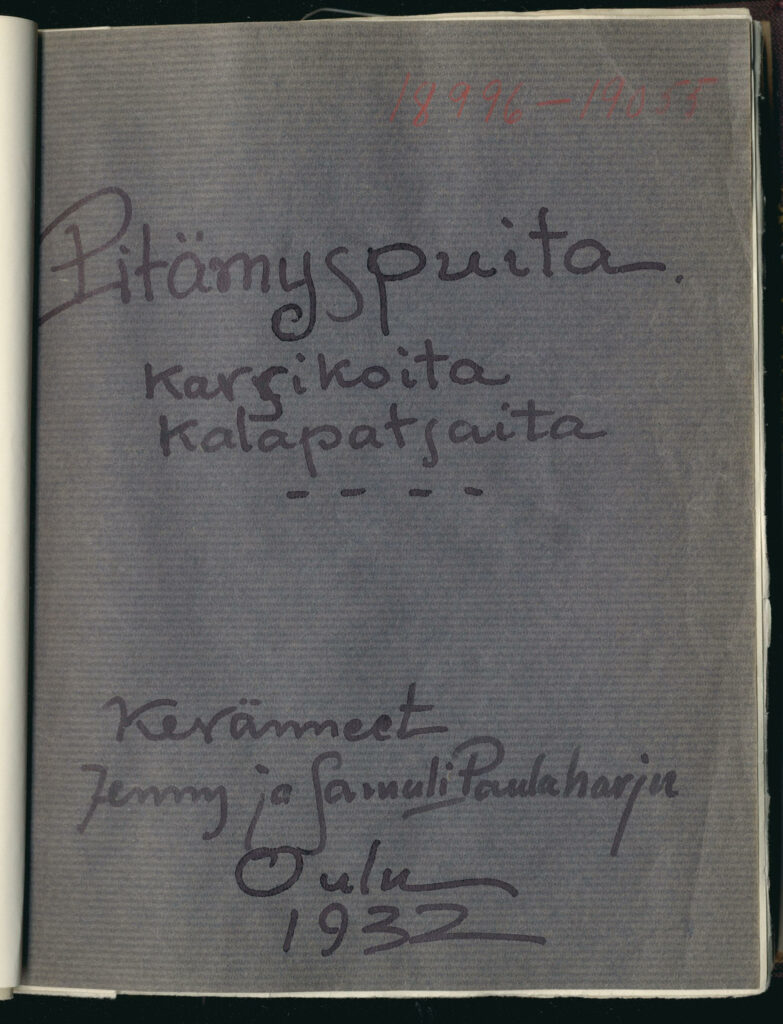 18996–19055
Pitämyspuita.
karsikoita
kalapatsaita
- - - -
Keränneet
Jenny ja Samuli Paulaharju
Oulu
1932